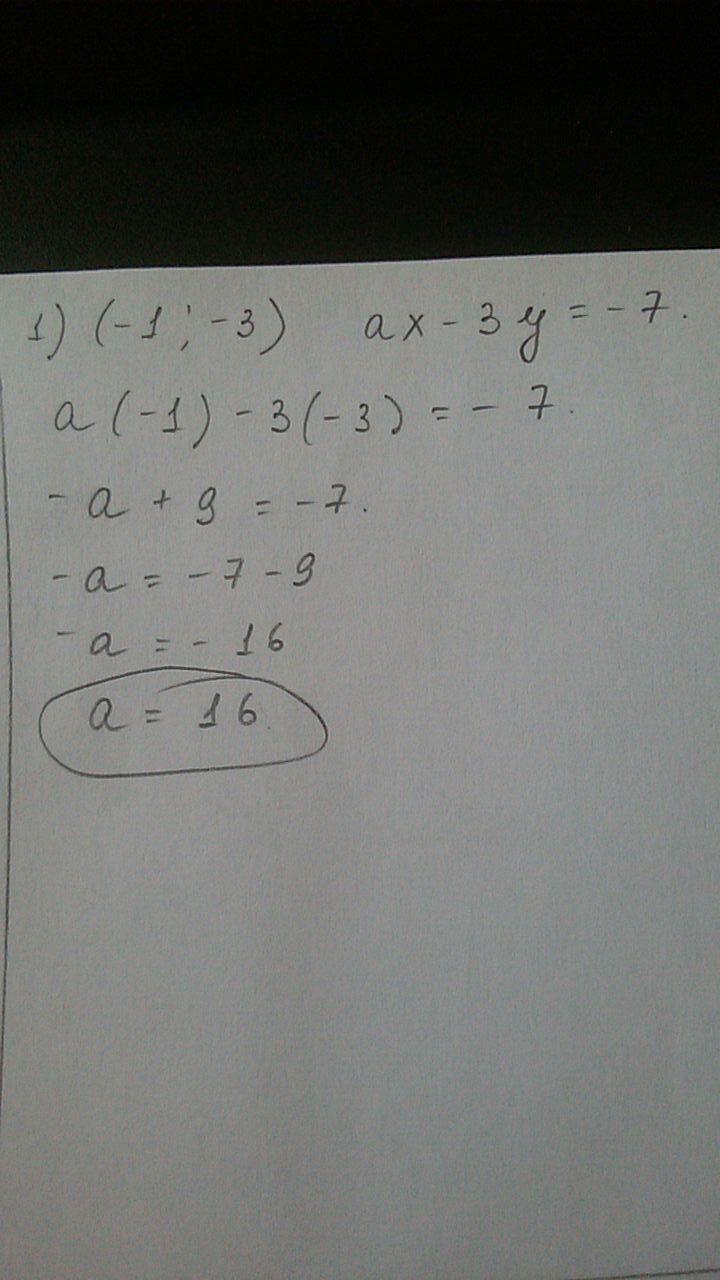 1) (-1; -3) ax - 3y = -7.
a(-1) - 3(-3) = - 7.
-a + 9 = -7.
-a = -7 - 9
-a = - 16
a = 16.